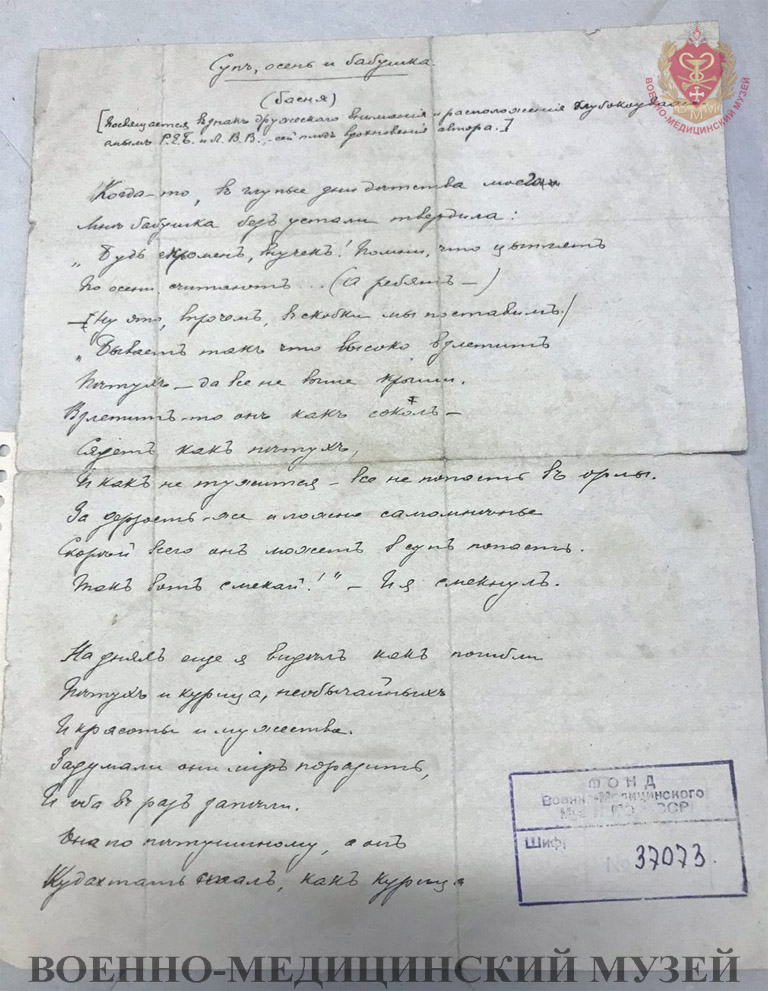 Супъ, осень и бабушка
(басня)
[Посвящается въ знакъ дружескаго вниманія и расположенія глубокоуваж-
аемымъ Р.Е.Б. и Л.В.В... сей плодъ вдохновенія автора.]
Когда-то, въ глупые дни дѣтства моего
Мнѣ бабушка безъ устали твердила:
„Будь скроменъ, внучекъ! Помни, что цыплятъ
По осени считаютъ... (А ребятъ —)
—[Ну это, впрочемъ, въ скобки мы поставимъ./
„Бываетъ такъ что высоко взлетитъ
Пѣтухъ — да все не выше крыши.
Взлетитъ-то онъ какъ соколъ —
Сядетъ какъ пѣтухъ,
И какъ не тужится — все не попасть въ орлы.
За дерзость-же и ложно самомнѣнье
Скорѣй всего онъ можетъ въ супъ попасть.
Такъ вотъ смекай!" — И я смекнулъ.
На дняхъ еще я видѣлъ какъ погибли
Пѣтухъ и курица, необычайныхъ
И красоты и мужества.
Задумали они міръ поразить,
И оба въ разъ запѣли.
Она по пѣтушиному, а онъ
Кудахтать сталъ, какъ курица
ФОНД
Военно-Медицинского
Шифр
№ 37073.
ВОЕННО-МЕДИЦИНСКИЙ МУЗЕЙ
ВММ
ВОЕННО-МЕДИЦИНСКИЙ МУЗЕЙ